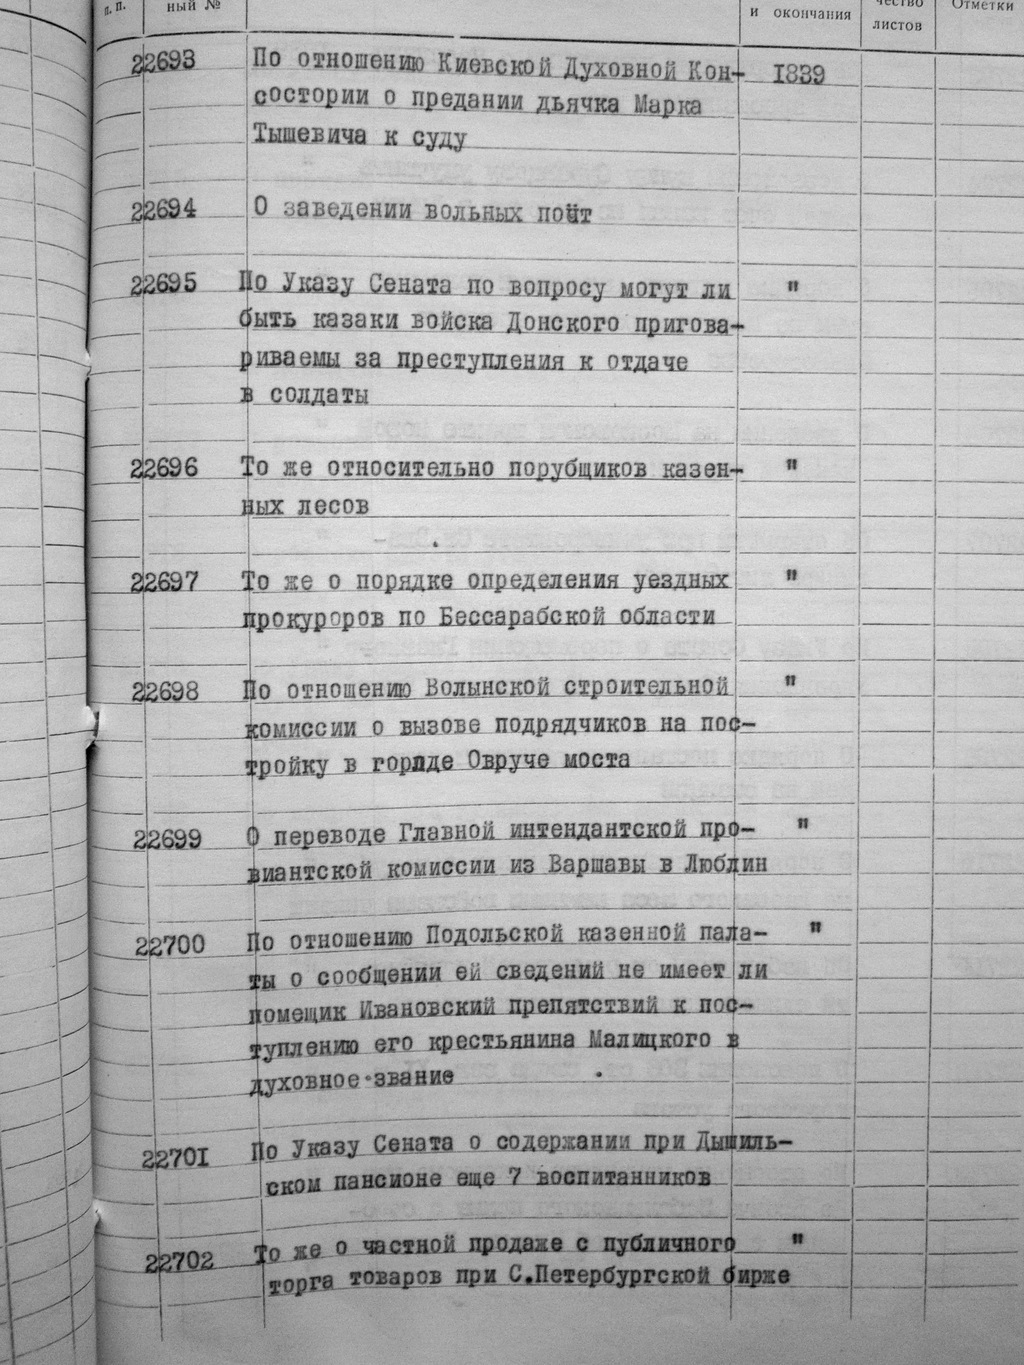 п.п. ный № и окончания чество листов Отметки
22693 По отношению Киевской Духовной Кон- 1839
состории о предании дьячка Марка
Тышевича к суду
22694 О заведении вольных почт
22695 По Указу Сената по вопросу могут ли "
быть казаки войска Донского пригова-
риваемы за преступления к отдаче
в солдаты
22696 То же относительно порубщиков казен- "
ных лесов
22697 То же о порядке определения уездных "
прокуроров по Бессарабской области
22698 По отношению Волынской строительной "
комиссии о вызове подрядчиков на пос-
тройку в городе Овруче моста
22699 О переводе Главной интендантской про- "
виантской комиссии из Варшавы в Люблин
22700 По отношению Подольской казенной пала- "
ты о сообщении ей сведений не имеет ли
помещик Ивановский препятствий к пос-
туплению его крестьянина Малицкого в
духовное звание
22701 По Указу Сената о содержании при Дышиль-
ском пансионе еще 7 воспитанников
22702 То же о частной продаже с публичного "
торга товаров при С.Петербургской бирже